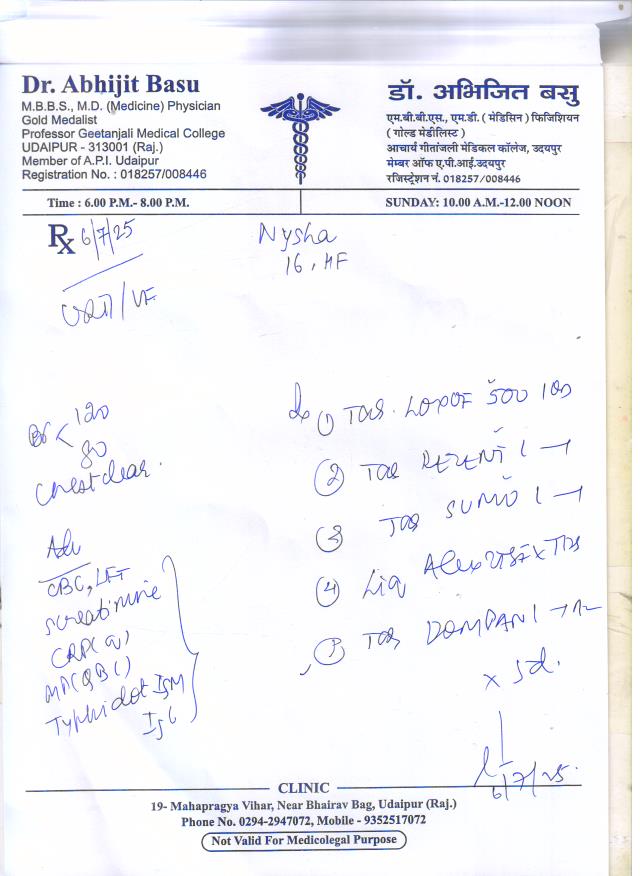 Dr. Abhijit Basu
M.B.B.S., M.D. (Medicine) Physician
Gold Medalist
Professor Geetanjali Medical College
UDAIPUR - 313001 (Raj.)
Member of A.P.I. Udaipur
Registration No. : 018257/008446
डॉ. अभिजित बसु
एम.बी.बी.एस., एम.डी. ( मेडिसिन ) फिजिशियन
( गोल्ड मेडीलिस्ट )
आचार्य गीतांजली मेडिकल कॉलेज, उदयपुर
मेम्बर ऑफ ए.पी.आई.उदयपुर
रजिस्ट्रेशन नं. 018257/008446
Time : 6.00 P.M.- 8.00 P.M.
SUNDAY: 10.00 A.M.-12.00 NOON
Rx 6/7/25
Nysha
16,
/VF
120
80
Chest clear.
Adv
CBC, LFT
S creatinine
CRP(Q)
MP(QBC)
Typhidot IgM
IgG
(1) TAB. LOXOF 500 1OD
(2) TAB
(3) TAB SUMO 1
(4) Liq Alex 2TSF x TDS
TAB DOMPAN 1
x 5d.
6/7/25.
CLINIC
19- Mahapragya Vihar, Near Bhairav Bag, Udaipur (Raj.)
Phone No. 0294-2947072, Mobile - 9352517072
Not Valid For Medicolegal Purpose